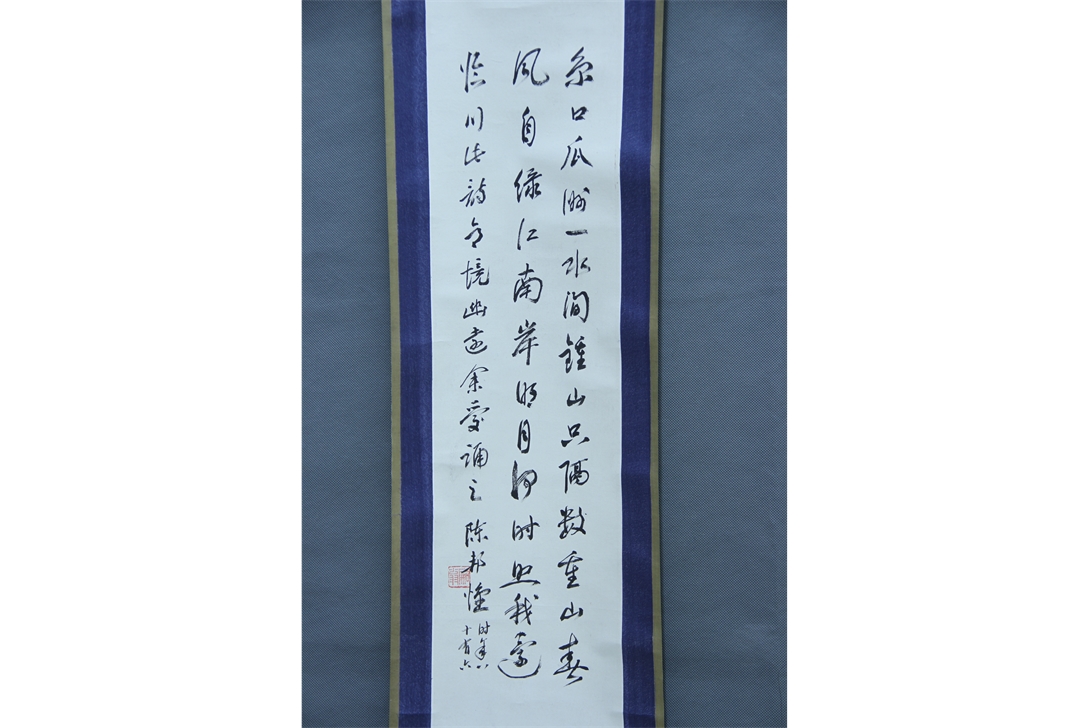 京口瓜洲一水间鍾山只隔数重山春
风自绿江南岸明月何时照我還
临川此詩意境幽遠余爱誦之 陈邦懷
时年八
十有六